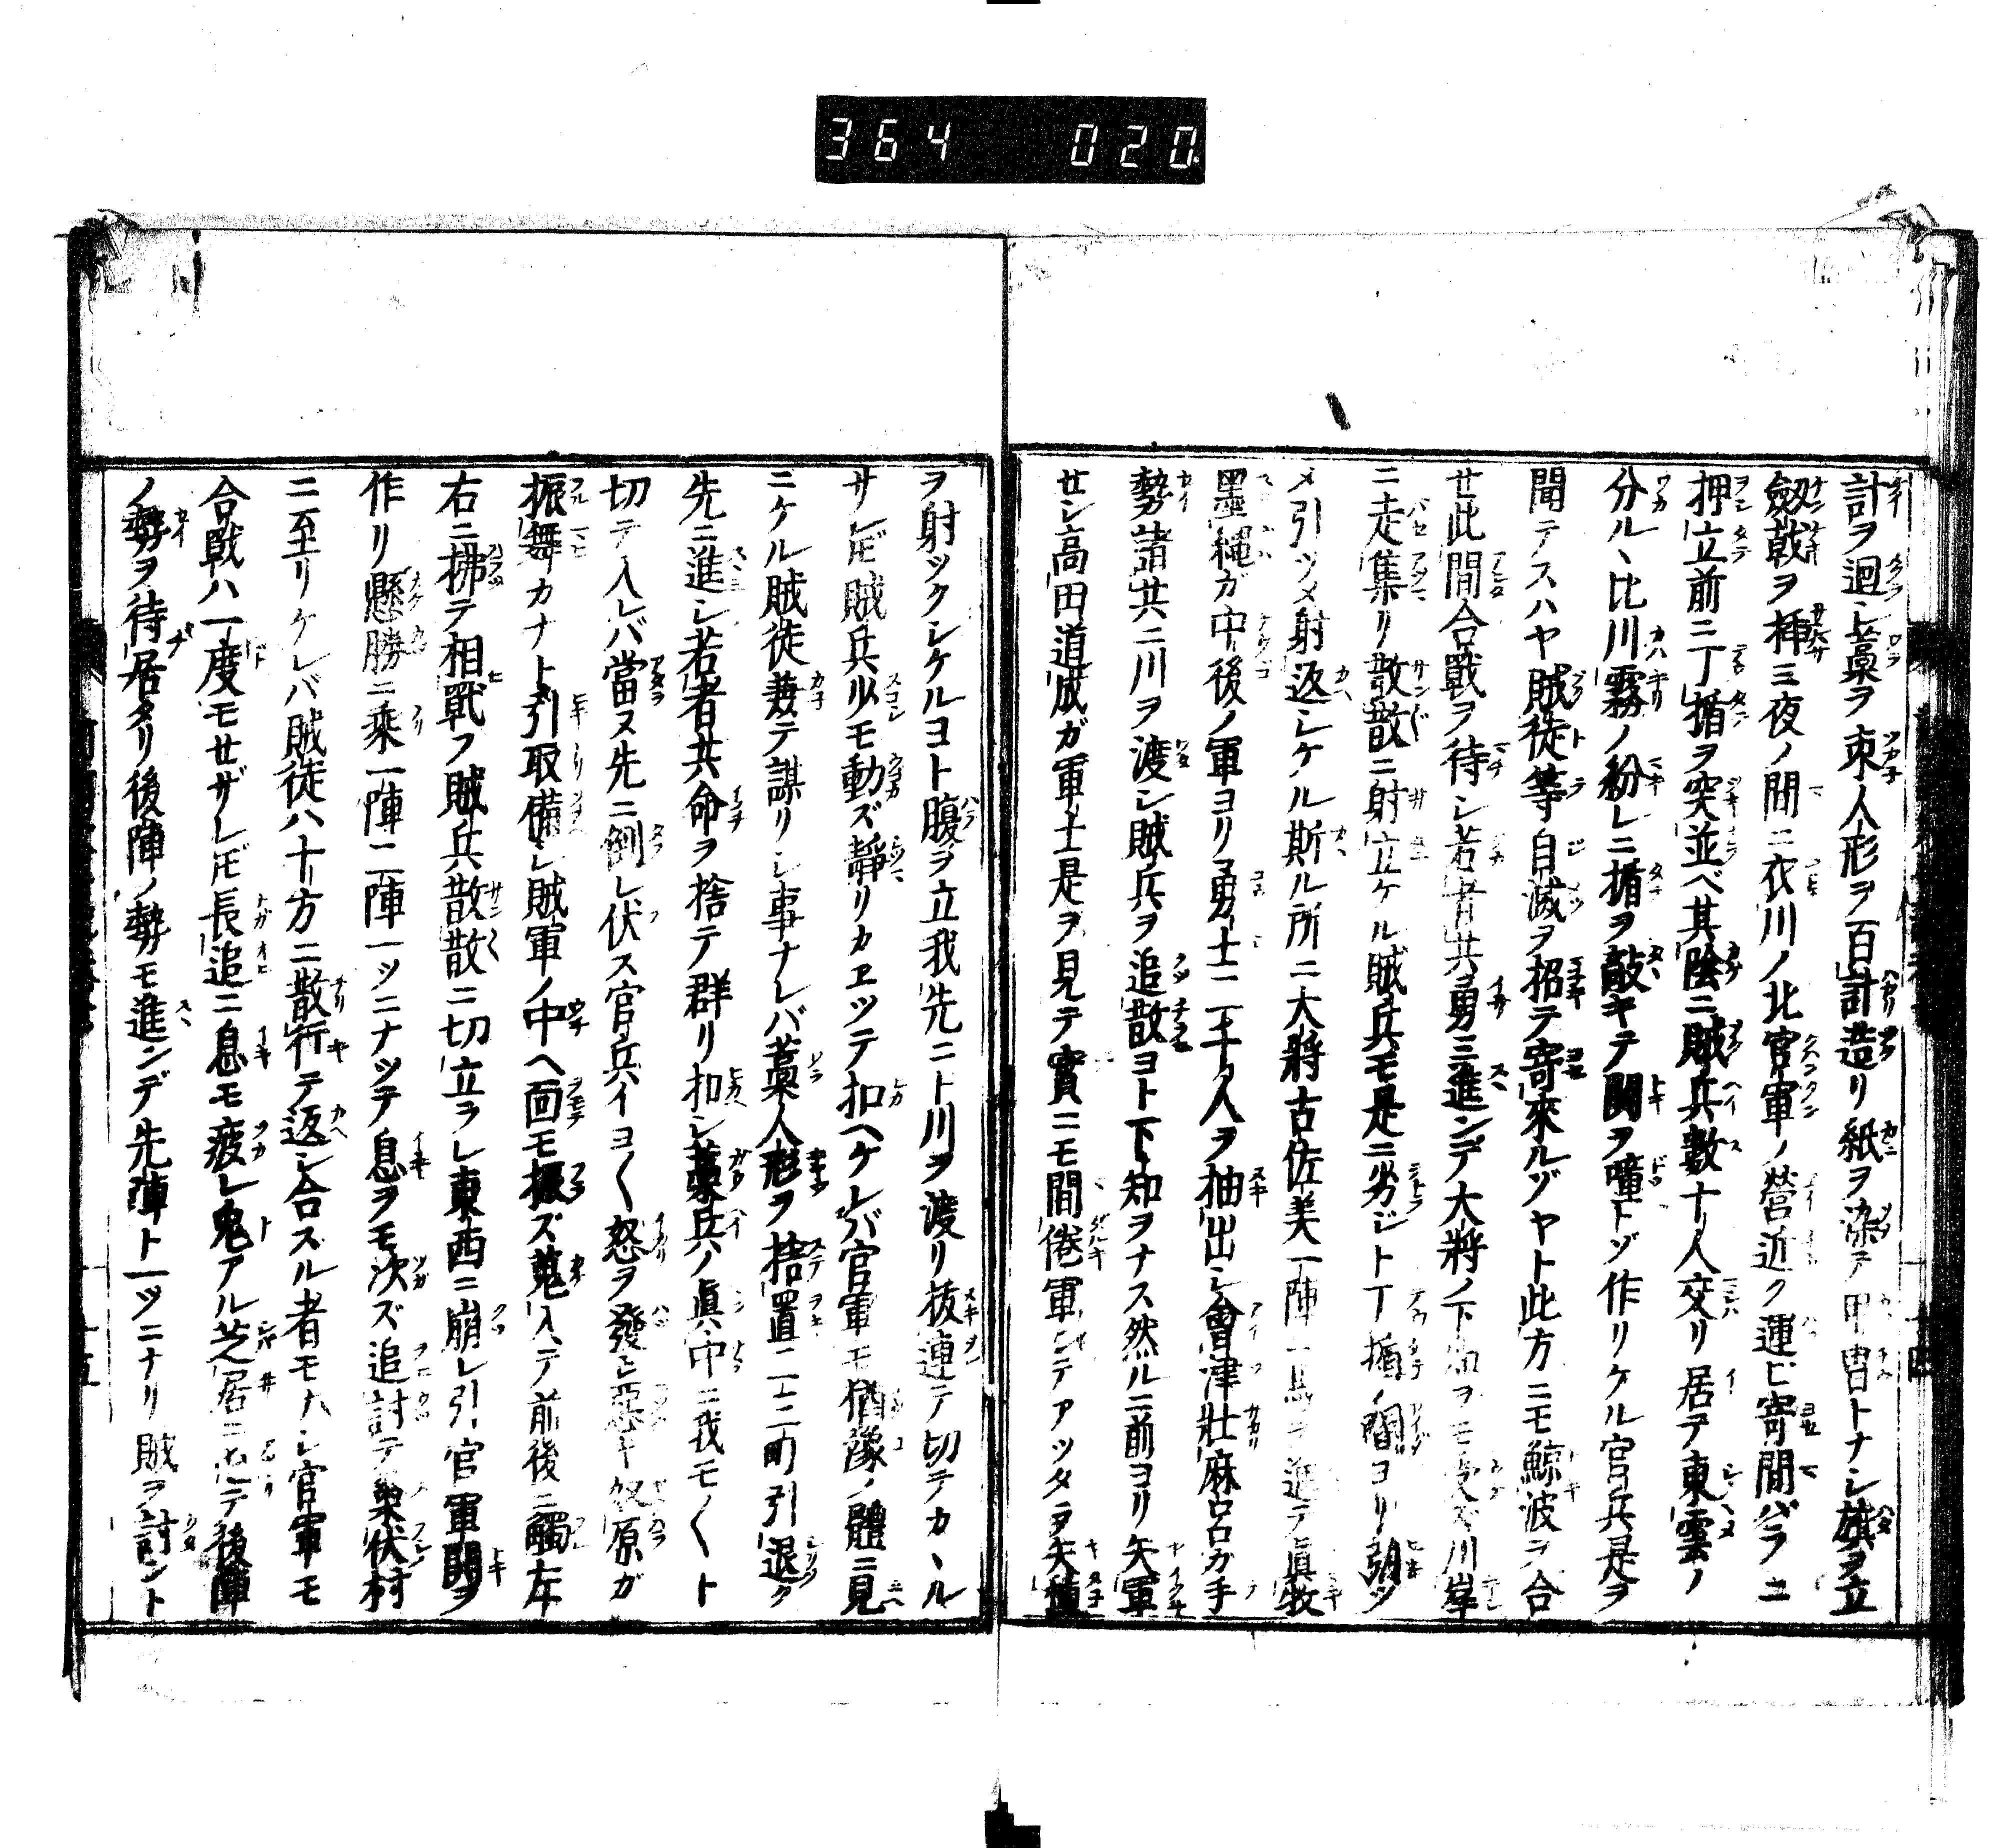 364 020
計ヲ廻シ藁ヲ束人形ヲ百計造リ紙ヲ染テ甲冑トナシ旗ヲ立
劔戟ヲ挿ミ夜ノ間ニ衣川ノ北官軍ノ營近ク運ビ寄間バラニ
押立前ニ丁楯ヲ突並ベ其陰ニ賊兵數十人交リ居テ東雲ノ
分ル丶比川霧ノ紛レニ楯ヲ敲キテ鬨ヲ噇トゾ作リケル官兵是ヲ
聞テスハヤ賊徒等自滅ヲ招テ寄來ルゾヤト此方ニモ鯨波ヲ合
せ此間合戰ヲ待シ若者共勇ミ進ンデ大將ノ下知ヲモ受ズ川岸
ニ走集リ散散ニ射立ケル賊兵モ是ニ劣ジト丁楯ノ間ヨリ引ツ
メ引ツメ射返シケル斯ル所ニ大將古佐美一陣ニ馬ヲ進テ眞牧
墨縄ガ中後ノ軍ヨリ勇士二千人ヲ抽出シ會津壯麻呂ガ手
勢諸共ニ川ヲ渡シ賊兵ヲ追散ヨト下知ヲナス然ルニ前ヨリ矢軍
せシ高田道成ガ軍士是ヲ見テ實ニモ間倦軍シテアツタヲ矢種
ヲ射ツクシケルヨト腹ヲ立我先ニト川ヲ渡リ拔連テ切テカ丶ル
サレ𪜈賊兵少モ動ズ靜リカエツテ扣ヘケレバ官軍モ猶豫ノ體ニ見
ニケル賊徒兼テ謀リシ事ナレバ藁人形ヲ捨置一二町引退ク
先ニ進シ若者共命ヲ捨テ群リ扣シ藁兵ノ眞中ニ我モ〱ト
切テ入レバ當ヌ先ニ倒レ伏ス官兵イヨ〱怒ヲ發シ惡キ奴原ガ
振舞カナト引取備シ賊軍ノ中ヘ面モ振ズ蒐入テ前後ニ觸左
右ニ拂テ相戰フ賊兵散散ニ切立ラレ東西ニ崩レ引官軍鬨ヲ
作リ懸勝ニ乘一陣二陣一ツニナツテ息ヲモ次ズ追討テ巢伏村
ニ至リケレバ賊徒八十方ニ散行テ返シ合スル者モナシ官軍モ
合戰ハ一度モせザレ𪜈長追ニ息モ疲レ鬼アル芝居ニ テ後陣
ノ勢ヲ待居タリ後陣ノ勢モ進ンデ先陣ト一ツニナリ賊ヲ討ント